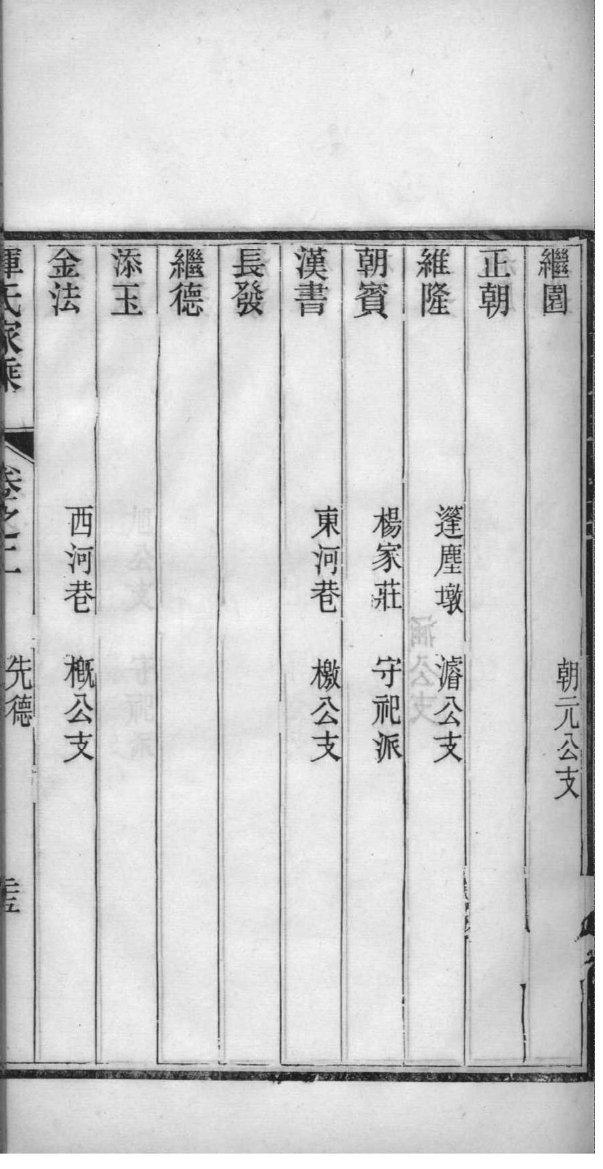 繼圓 朝元公支
正朝
維隆 篷塵墩 濬公支
朝賓 楊家莊 守祀派
漢書 東河巷 檄公支
長發
繼德
添玉
金法 西河巷 概公支
惲氏家乘 卷之二 先德